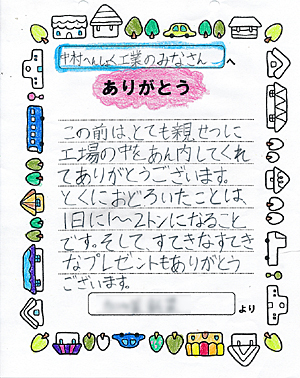 中村へんしく工業のみなさん
へ
ありがとう
この前は、とても親せつに
工場の中をあん内してくれ
てありがとうございます。
とくにおどろいたことは、
1日に1〜2トンになること
です。そして、すてきなすてき
なプレゼントもありがとう
ございます。
より